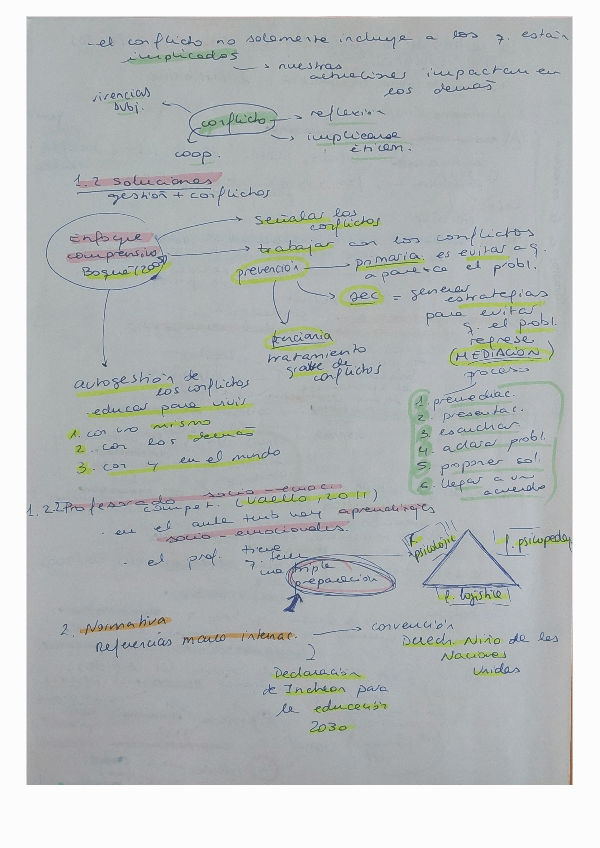 - el conflicto no solamente incluye a los q. están
implicados
→ nuestras
actuaciones impactan en
los demás
vivencias
subj.
conflicto
→ reflexión
→ implicarse
éticam.
coop.
1.2 Soluciones
gestión + conflictos
Enfoque
comprensivo
Boqué (2005)
señalar los
conflictos
trabajar con los conflictos
prevención
primaria es evitar a q.
aparezca el probl.
sec = generar
estrategias
para evitar
q. el probl.
regrese
(MEDIACIÓN)
proceso
terciaria
tratamiento
grave de
conflictos
autogestión de
los conflictos
educar para vivir
1. con uno mismo
2. con los demás
3. con y en el mundo
1. premediac.
2. presentac.
3. escuchar
4. aclarar probl.
5. proponer sol.
6. llegar a un
acuerdo
1.2.2 Profesorado socio-emoc.
compet. (Vaello, 2011)
- en el aula tmb hay aprendizajes
socio-emocionales.
- el prof. tiene
q. tener
una triple
preparación
P. psicológic
P. psicopedag
P. logística
2. Normativa
Referencias marco internac.
→ convención
Derech. Niño de las
Naciones
Unidas
Declaración
de Incheon para
la educación
2030